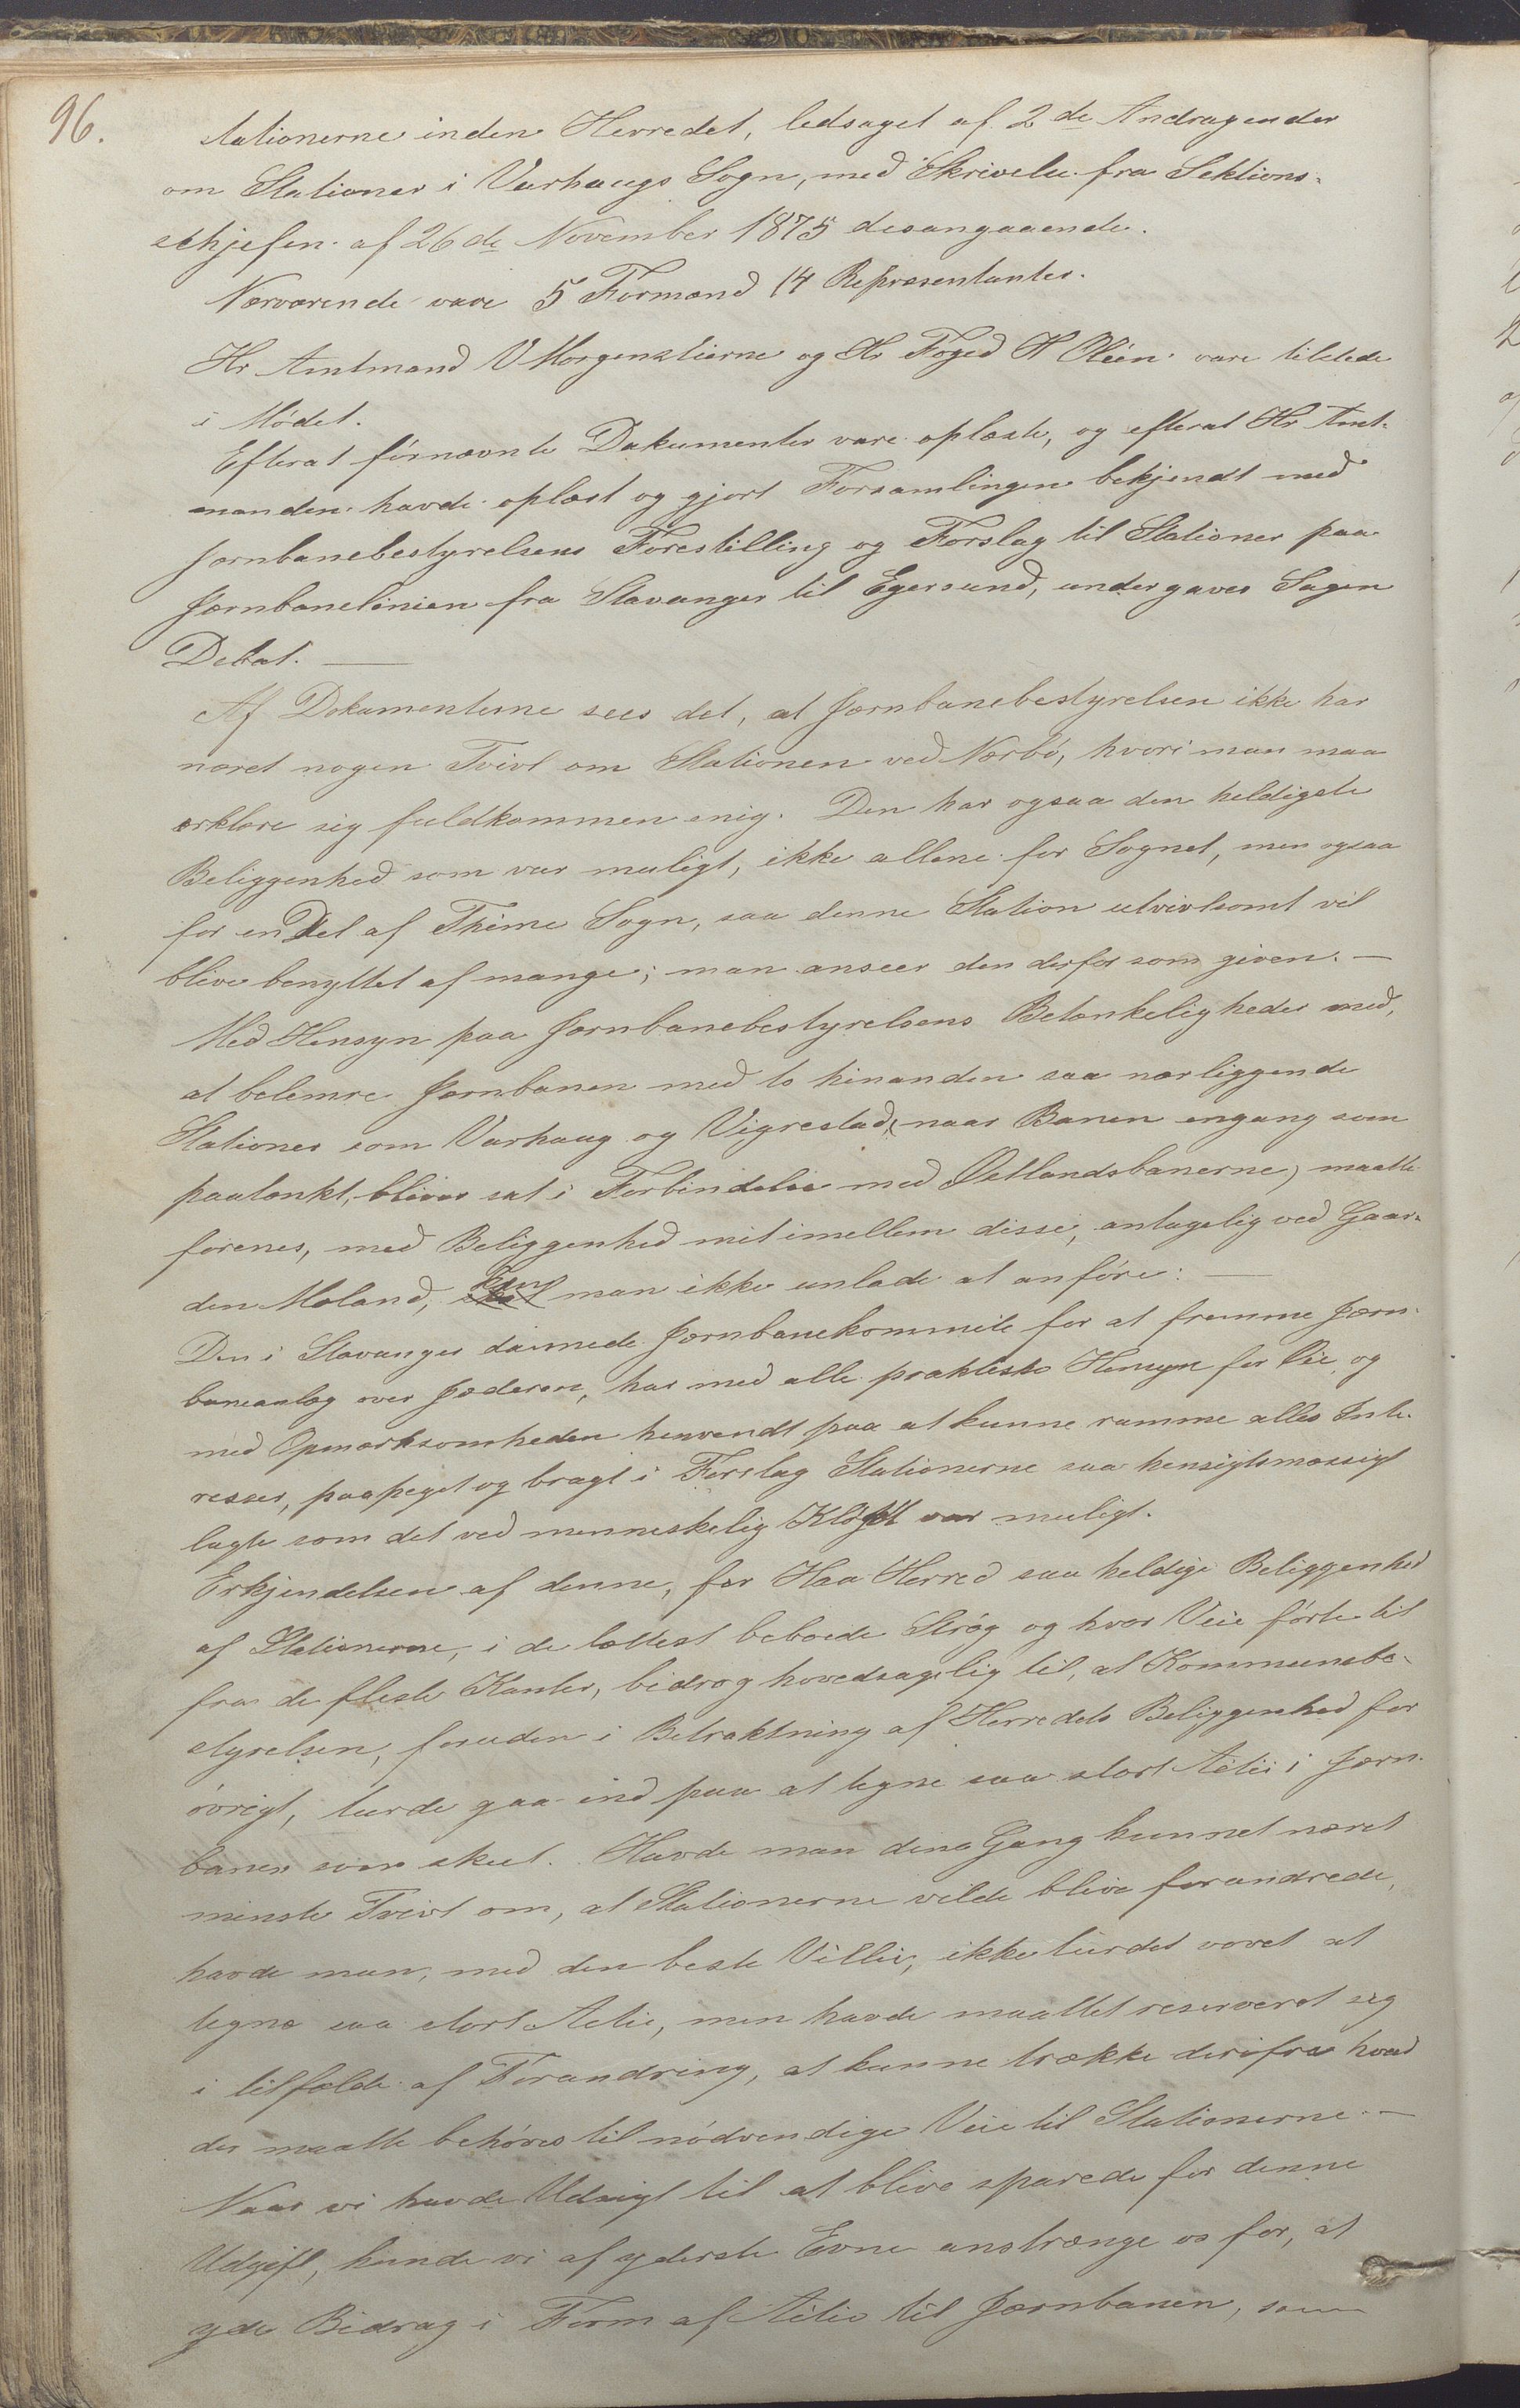 96.
stationerne inden Herredet, ledsaget af 2de Andragender
om Stationer i Varhaugs Sogn, med Skrivelse fra Sektions-
schjefen af 26de November 1875 desangaaende.
Nærværende vare 5 Formænd 14 Repræsentanter.
Hr Amtmand V Morgenstierne og Hr Foged H Olsen vare tilstede
i Mødet.
Efterat førnævnte Dokumenter vare oplæste, og efterat Hr Amt-
manden havde oplæst og gjort Forsamlingen bekjendt med
Jernbanebestyrelsens Forestilling og Forslag til Stationer paa
Jernbanelinien fra Stavanger til Egersund, undergaves Sagen
Debat. —
Af Dokumenterne sees det, at Jernbanebestyrelsen ikke har
næret nogen Tvivl om Stationen ved Nærbø, hvori man maa
erklære sig fuldkommen enig. Den har ogsaa den heldigste
Beliggenhed som var muligt, ikke allene for Sognet, men ogsaa
for en Del af Thime Sogn, saa denne Station utvivlsomt vil
blive benyttet af mange; man anseer den derfor som given. —
Med Hensyn paa Jernbanebestyrelsens Betænkeligheder med,
at belemre Jernbanen med to hinanden saa nærliggende
Stationer som Varhaug og Vigrestad, (naar Banen engang som
paatænkt, bliver sat i Forbindelse med Østlandsbanerne) maatte
forenes, med Beliggenhed mit imellem disse, antagelig ved Gaar-
den Moland, kan man ikke unlade at anføre: —
Den i Stavanger dannede Jernbanekommite for at fremme Jern-
baneanlæg over Jæderen, har med alle praktiske Hensyn for Øie, og
med Opmærksomheden henvendt paa at kunne ramme alles Inte-
resser, paapeget og bragt i Forslag Stationerne saa hensigtsmæssigt
lagte som det ved menneskelig Kløgt var muligt.
Erkjendelsen af denne, for Haa Herred saa heldige Beliggenhed
af Stationerne, i de tættest beboede Strøg og hvor Veie førte til
fra de fleste Kanter, bidrog hovedsagelig til, at Kommunebe-
styrelsen, foruden i Betraktning af Herredets Beliggenhed for
øvrigt, turde gaa ind paa at tegne saa stort Actie i Jern-
banen som skeet. Havde man den Gang kunnet næret
minste Tvivl om, at Stationerne vilde blive forandrede,
havde man, med den beste Villie, ikke turdet vovet at
tegne saa stort Actie, men havde maattet reserveret sig
i tilfælde af Forandring, at kunne trække derifra hvad
der maatte behøves til nødvendige Veie til Stationerne. —
Naar vi havde Udsigt til at blive sparede for denne
Udgift, kunde vi af yderste Evne anstrænge os for, at
yde Bidrag i Form af Actie til Jernbanen, som